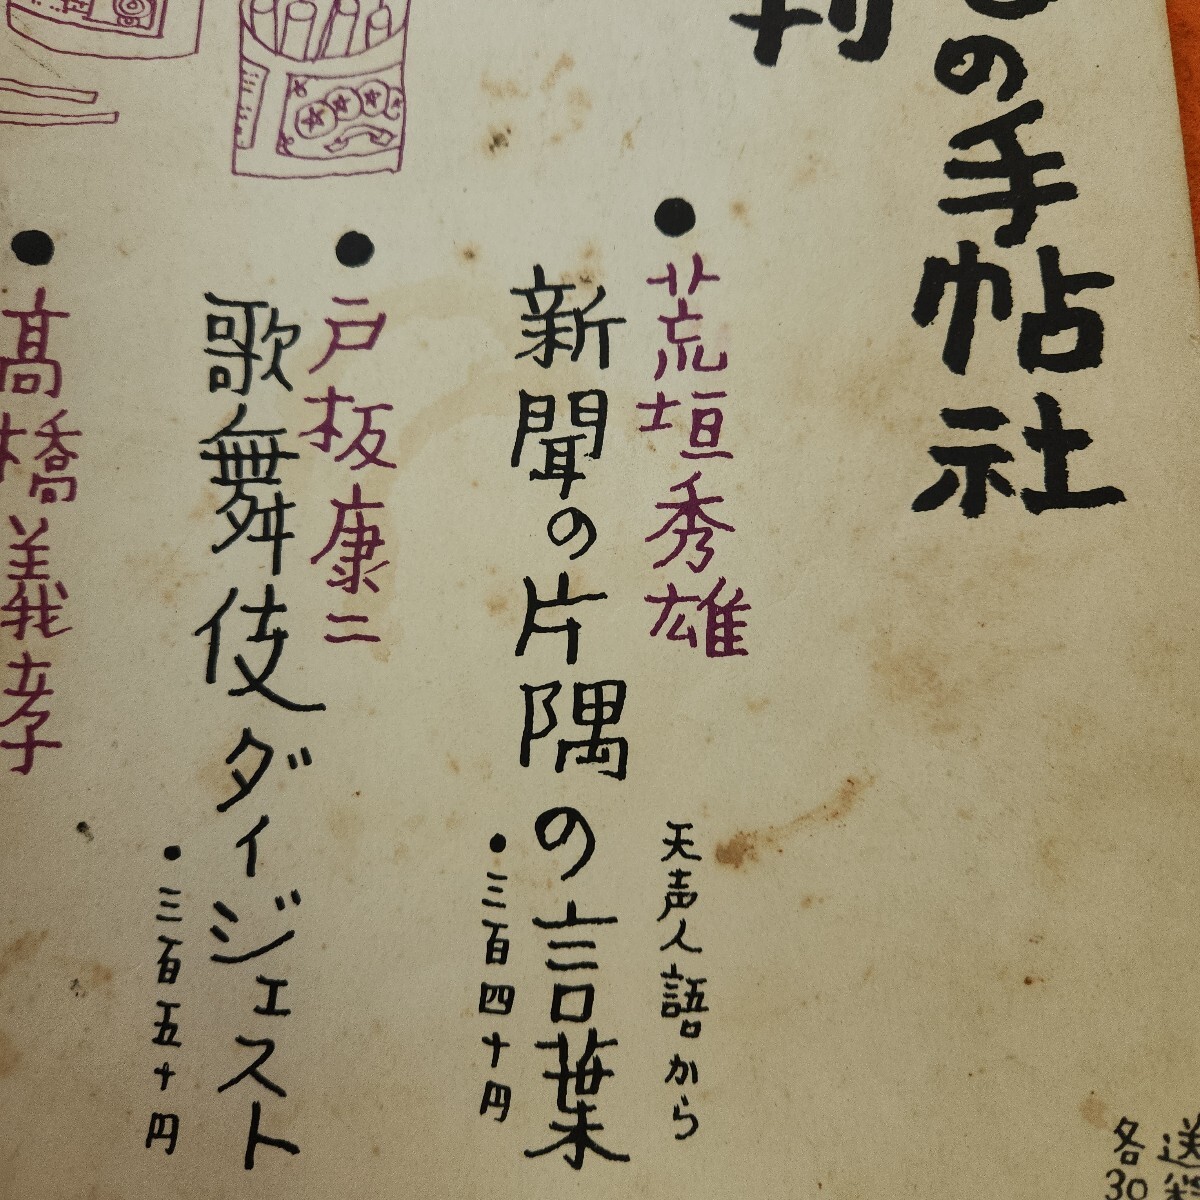 の手帖社
刊
送
各30
荒垣秀雄
天声人語から
新聞の片隅の言葉
三百四十円
戸板康二
歌舞伎ダイジェスト
三百五十円
高橋義孝